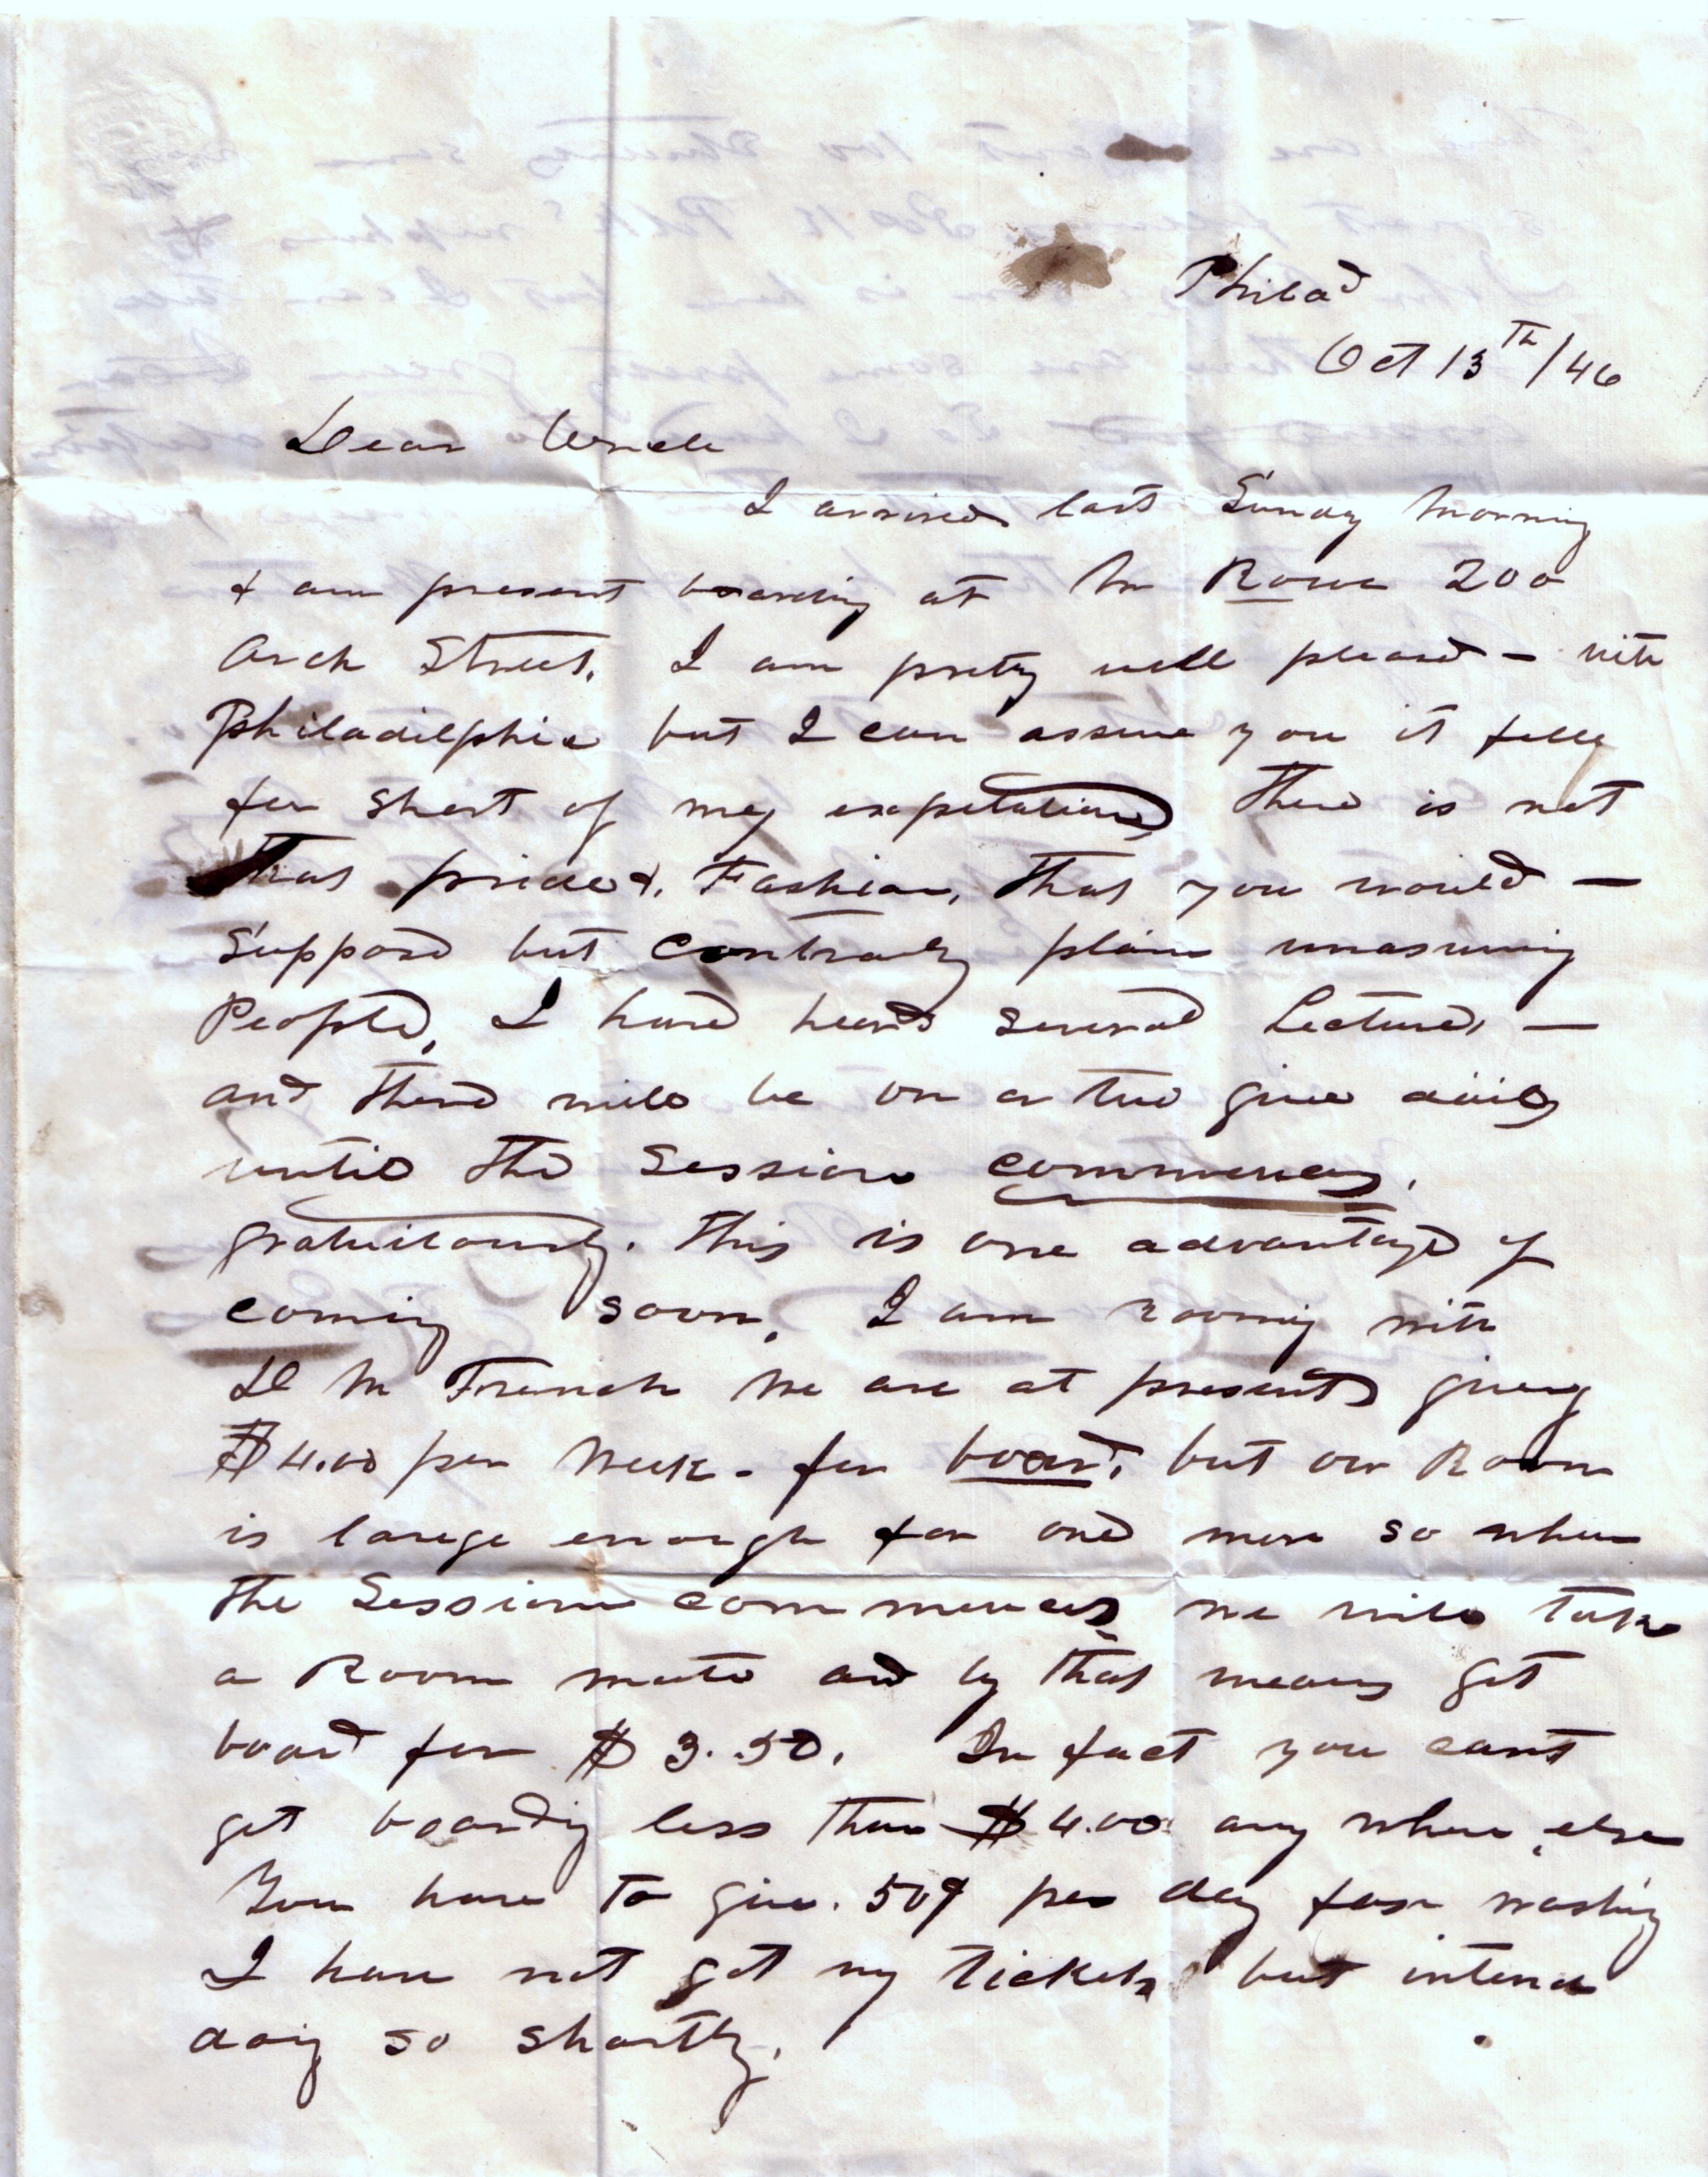 Philad
Oct 13th/46
Dear Uncle
I arrived last Sunday morning
& am present boarding at Mr Rowe 200
Arch Street. I am pretty well pleased - with
Philadelphia but I can assure you it fell
far short of my expetations There is not
that pride &. Fashion, that you would —
Suppose but contrary plain unasuming
People, I have heard several Lectures, —
and there will be on or two give daily
until the Session commences,
gratuitously. This is one advantage of
coming soon, I am rooming with
D M French We are at present giving
$4.00 per Week - for board, but our Room
is large enough for one more so when
the Session commences we will take
a Room mate and by that means get
board for $3.50. In fact you cant
get boardig less than $4.00 any where else
You have to give. 50¢ per day for washing
I have not got my tickets but intend
doig so shortly.